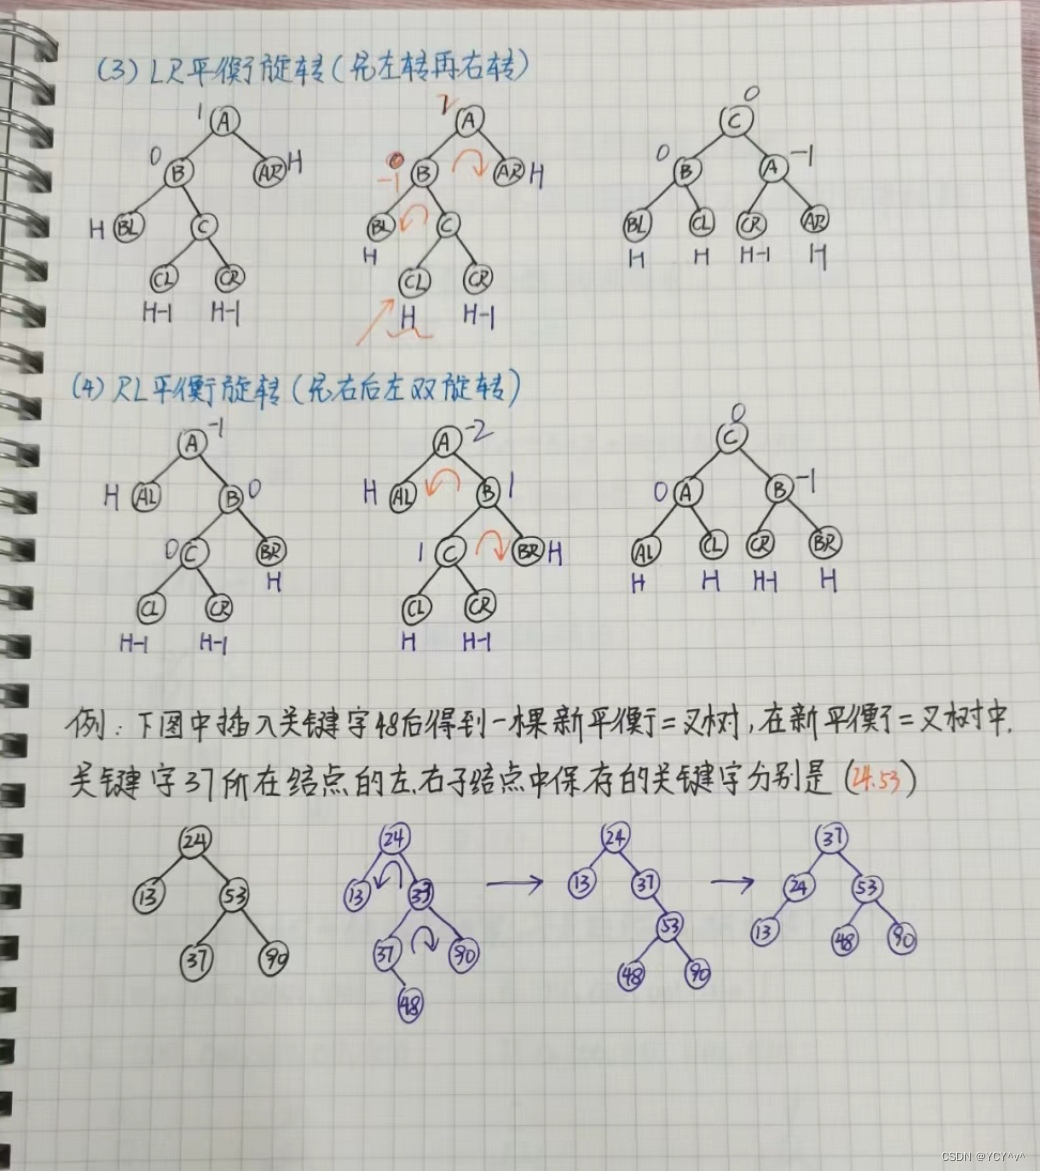 (3) LR平衡旋转(先左转再右转)
1 A 2 A 0 C
0 B AR H 0 -1 B AR H 0 B A -1
H BL C BL C BL CL CR AR
H H H H-1 H
CL CR CL CR
H-1 H-1 H H-1
(4) RL平衡旋转(先右后左双旋转)
A -1 A -2 0 C
H AL B 0 H AL B 1 0 A B -1
0 C BR 1 C BR H AL CL CR BR
H H H H-1 H
CL CR CL CR
H-1 H-1 H H-1
例:下图中插入关键字48后得到一棵新平衡二叉树,在新平衡二叉树中.
关键字37所在结点的左.右子结点中保存的关键字分别是(24.53)
24 24 24 37
13 53 13 13 37 24 53
37 90 37 90 53 13 48 90
48 48 90
CSDN @YCY^v^